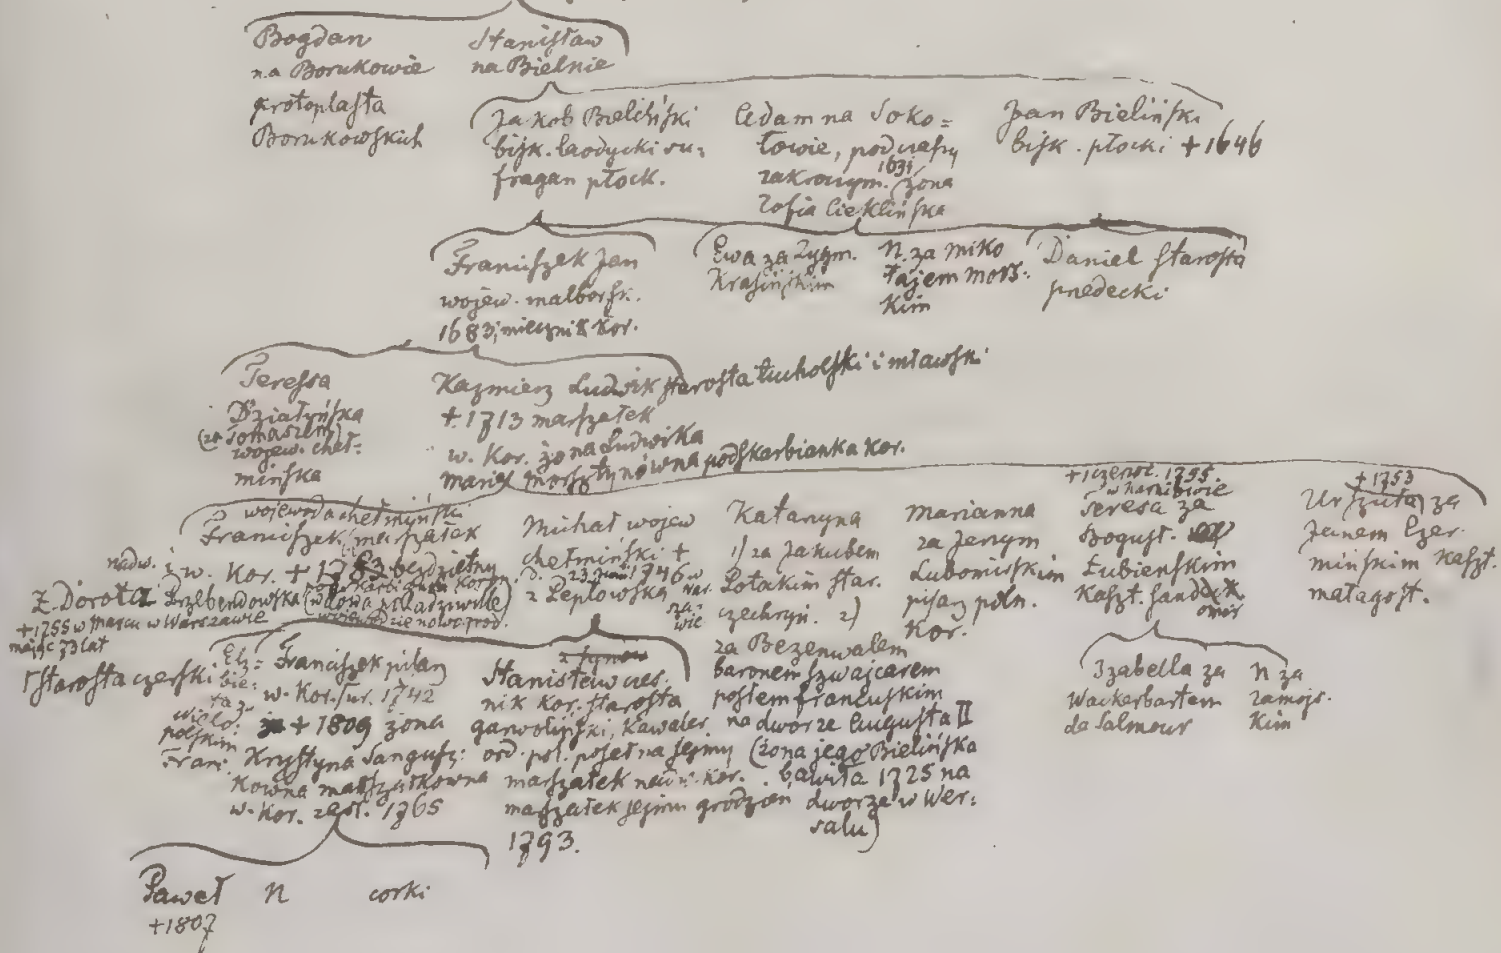 Bogdan
na Borukowie
protoplasta
Borukowskich
Stanisław
na Bielnie
Jakob Bieliński
bisk. laodycki su:
fragan płock.
Adam na Soko=
łowie, podczaszy
zakroczym. 1631, żona
Zofia Cieklińska
Jan Bieliński
bisk. płocki +1646
Franciszek Jan
wojew. malborsk.
1683, miecznik kor.
Ewa za Zygm.
Krasińskim
N. za Miko
łajem Mors:
kim
Daniel starosta
przedecki
Teressa
Działyńska
(za Tomaszem)
wojew. cheł:
mińska
Kazmierz Ludwik starosta tucholski i mławski
+ 1713 marszałek
w. Kor. żona Ludwika
Marya Morsztynówna podskarbianka kor.
wojewoda chełmiński
Franciszek marszałek
nadw. i w. Kor. + 1763 bezdzietny
Ż. Dorota Przebendowska
podskarbianka koron.
(wdowa po Radziwille)
wojewodzie nowogrod.
+1755 w marcu w Warszawie
mając 73 lat
starosta czerski
Michał wojew
chełmiński +
23 1746 w War
sza-
wie
2 Lepłowska
Katarzyna
1) za Jakubem
Potockim star.
czechryń. 2)
za Bezenwalem
baronem szwajcarem
posłem francuskim
na dworze Augusta II
(żona jego Bielińska
bawiła 1725 na
dworze w Wer:
salu)
Marianna
za Jerzym
Lubomirskim
pisarz poln.
Kor.
+ 1 czerwc. 1755.
w Karnibicie
Teresa za
Bogusł.
Łubieńskim
Kaszt. sando
mir
+ 1753
Urszula za
Janem Czer.
mińskim Kaszt.
małagost.
Elż=
bie:
ta z
Wielo:
polskim
Fran:
Franciszek pisarz
w. Kor. /ur. 1742
+ 1809 żona
Krystyna Sangusz:
kówna marszałkowna
w. Kor. zaśl. 1765
z Tynow
Stanisław cześ.
nik Kor. starosta
garwoliński, Kawaler
ord. pol. poseł na sejmy
marszałek nadw. kor.
marszałek sejmu grodzień
1793.
Izabella za
Wackerbartem
de Salmour
N za
zamojs.
kim
Paweł
+1807
N
corki